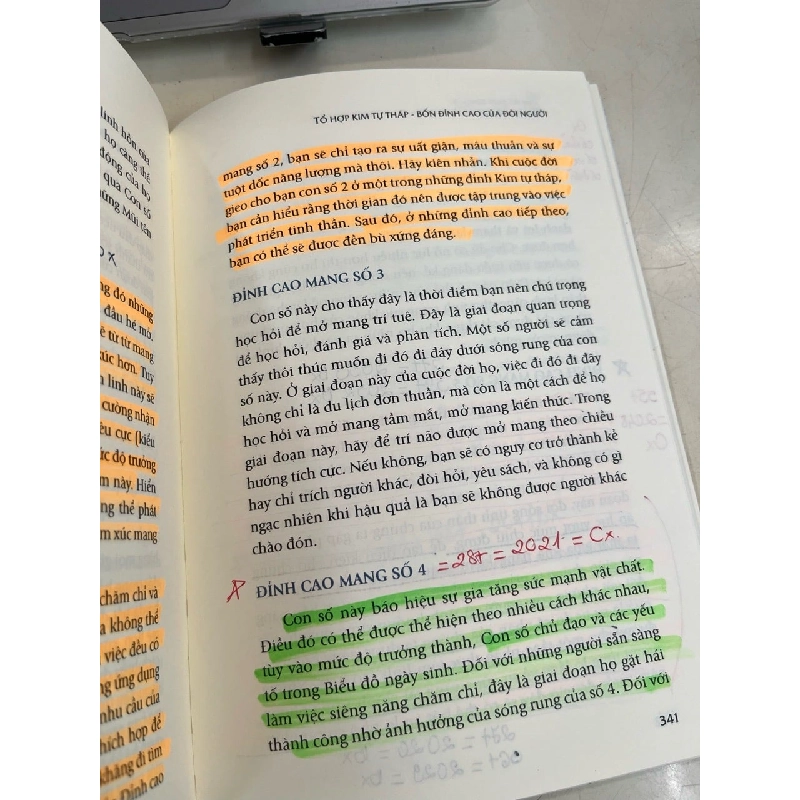 linh hồn của
họ càng thể
động của họ
qua Con số
hững Mũi tên
ng đó những
đầu hé mở.
ề từ từ mang
xúc hơn. Tuy
linh này sẽ
cường nhận
êu cực (kiểu
ức độ trưởng
m này. Hiển
ng thể phát
m xúc mang
chăm chỉ và
a không thể
việc đều có
ng ứng dụng
nhu cầu của
hích hợp để
khăng đi tìm
Đỉnh cao
TỔ HỢP KIM TỰ THÁP - BỐN ĐỈNH CAO CỦA ĐỜI NGƯỜI
mang số 2, bạn sẽ chỉ tạo ra sự uất giận, mâu thuẫn và sự
tuột dốc năng lượng mà thôi. Hãy kiên nhẫn. Khi cuộc đời
gieo cho bạn con số 2 ở một trong những đỉnh Kim tự tháp,
bạn cần hiểu rằng thời gian đó nên được tập trung vào việc
phát triển tinh thần. Sau đó, ở những đỉnh cao tiếp theo,
bạn có thể sẽ được đền bù xứng đáng.
ĐỈNH CAO MANG SỐ 3
Con số này cho thấy đây là thời điểm bạn nên chú trọng
học hỏi để mở mang trí tuệ. Đây là giai đoạn quan trọng
để học hỏi, đánh giá và phân tích. Một số người sẽ cảm
thấy thôi thúc muốn đi đó đi đây dưới sóng rung của con
số này. Ở giai đoạn này của cuộc đời họ, việc đi đó đi đây
không chỉ là du lịch đơn thuần, mà còn là một cách để họ
học hỏi và mở mang tầm mắt, mở mang kiến thức. Trong
giai đoạn này, hãy để trí não được mở mang theo chiều
hướng tích cực. Nếu không, bạn sẽ có nguy cơ trở thành kẻ
hay chỉ trích người khác, đòi hỏi, yêu sách, và không có gì
ngạc nhiên khi hậu quả là bạn sẽ không được người khác
chào đón.
ĐỈNH CAO MANG SỐ 4 = 28t = 2021 = Cx.
Con số này báo hiệu sự gia tăng sức mạnh vật chất.
Điều đó có thể được thể hiện theo nhiều cách khác nhau,
tùy vào mức độ trưởng thành, Con số chủ đạo và các yếu
tố trong Biểu đồ ngày sinh. Đối với những người sẵn sàng
làm việc siêng năng chăm chỉ, đây là giai đoạn họ gặt hái
thành công nhờ ảnh hưởng của sóng rung của số 4. Đối với
341